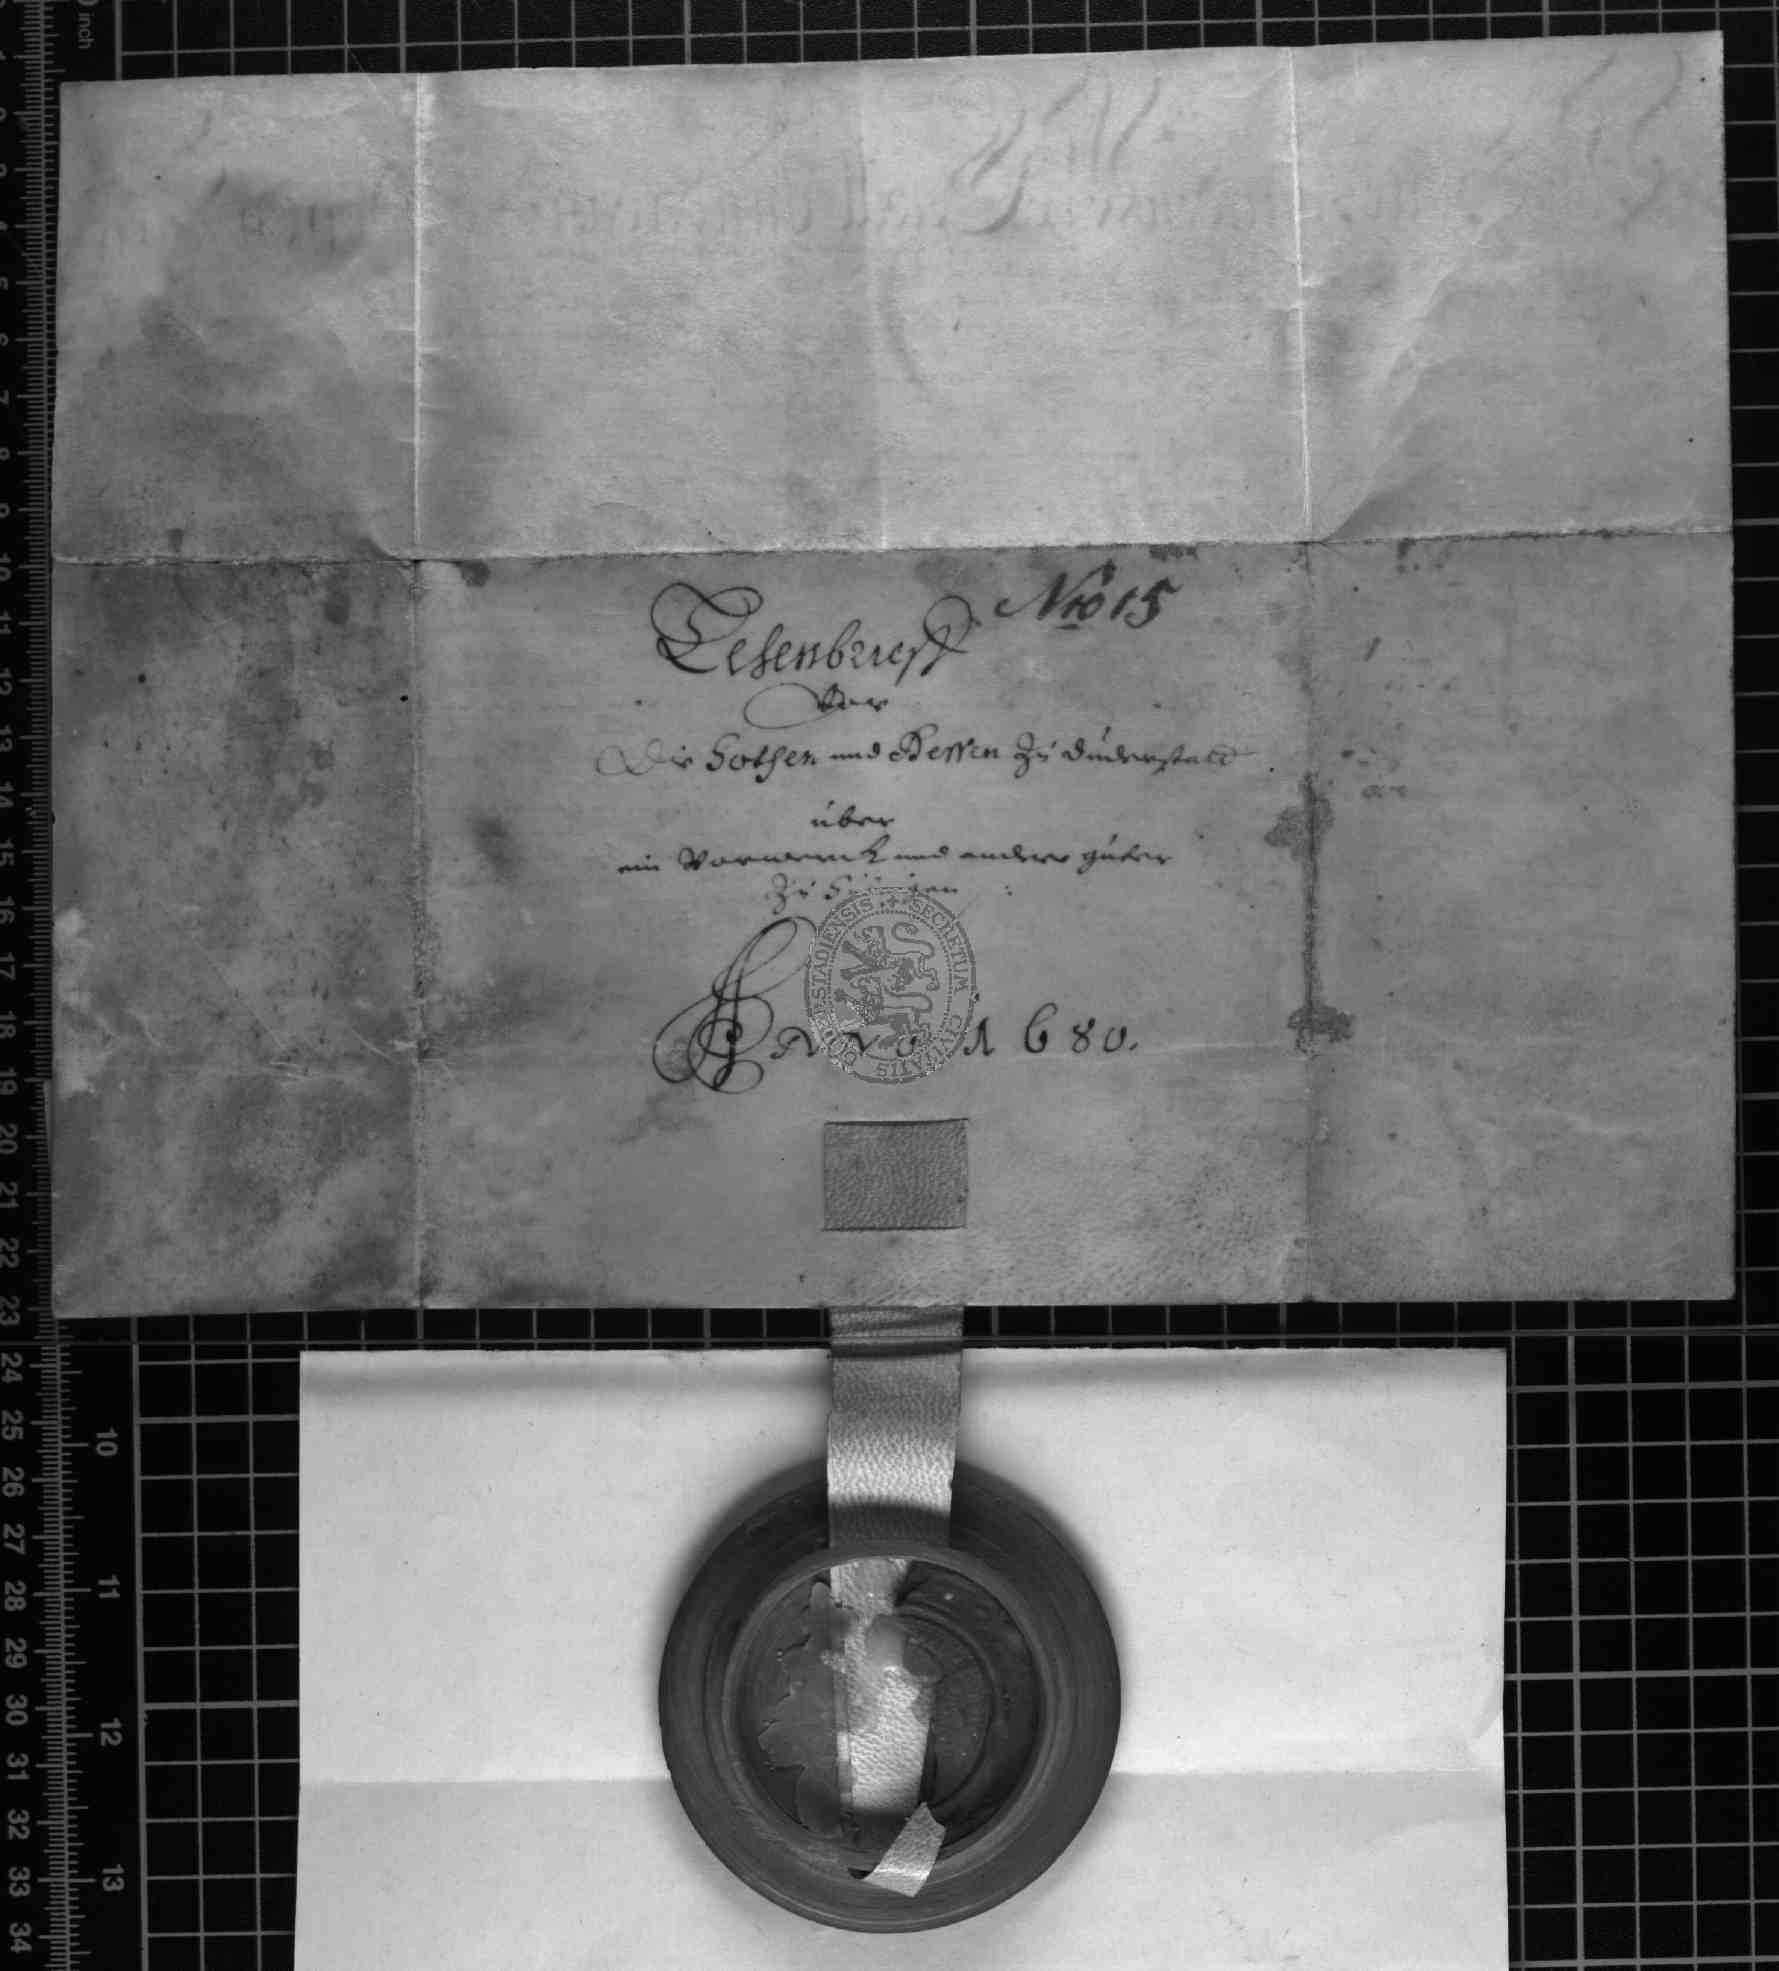 Nro 15
Lehenbrieff
Vor
Die Hothen und Hessen Zu Duderstatt
über
ein Vorwerck und andere güter
Zu
Anno 1680.
SECRETUM CIVITATIS DUDERSTADIENSIS
inch
1 2 3 4 5 6 7 8 9 10 11 12 13 14 15 16 17 18 19 20 21 22 23 24 25 26 27 28 29 30 31 32 33 34
10 11 12 13